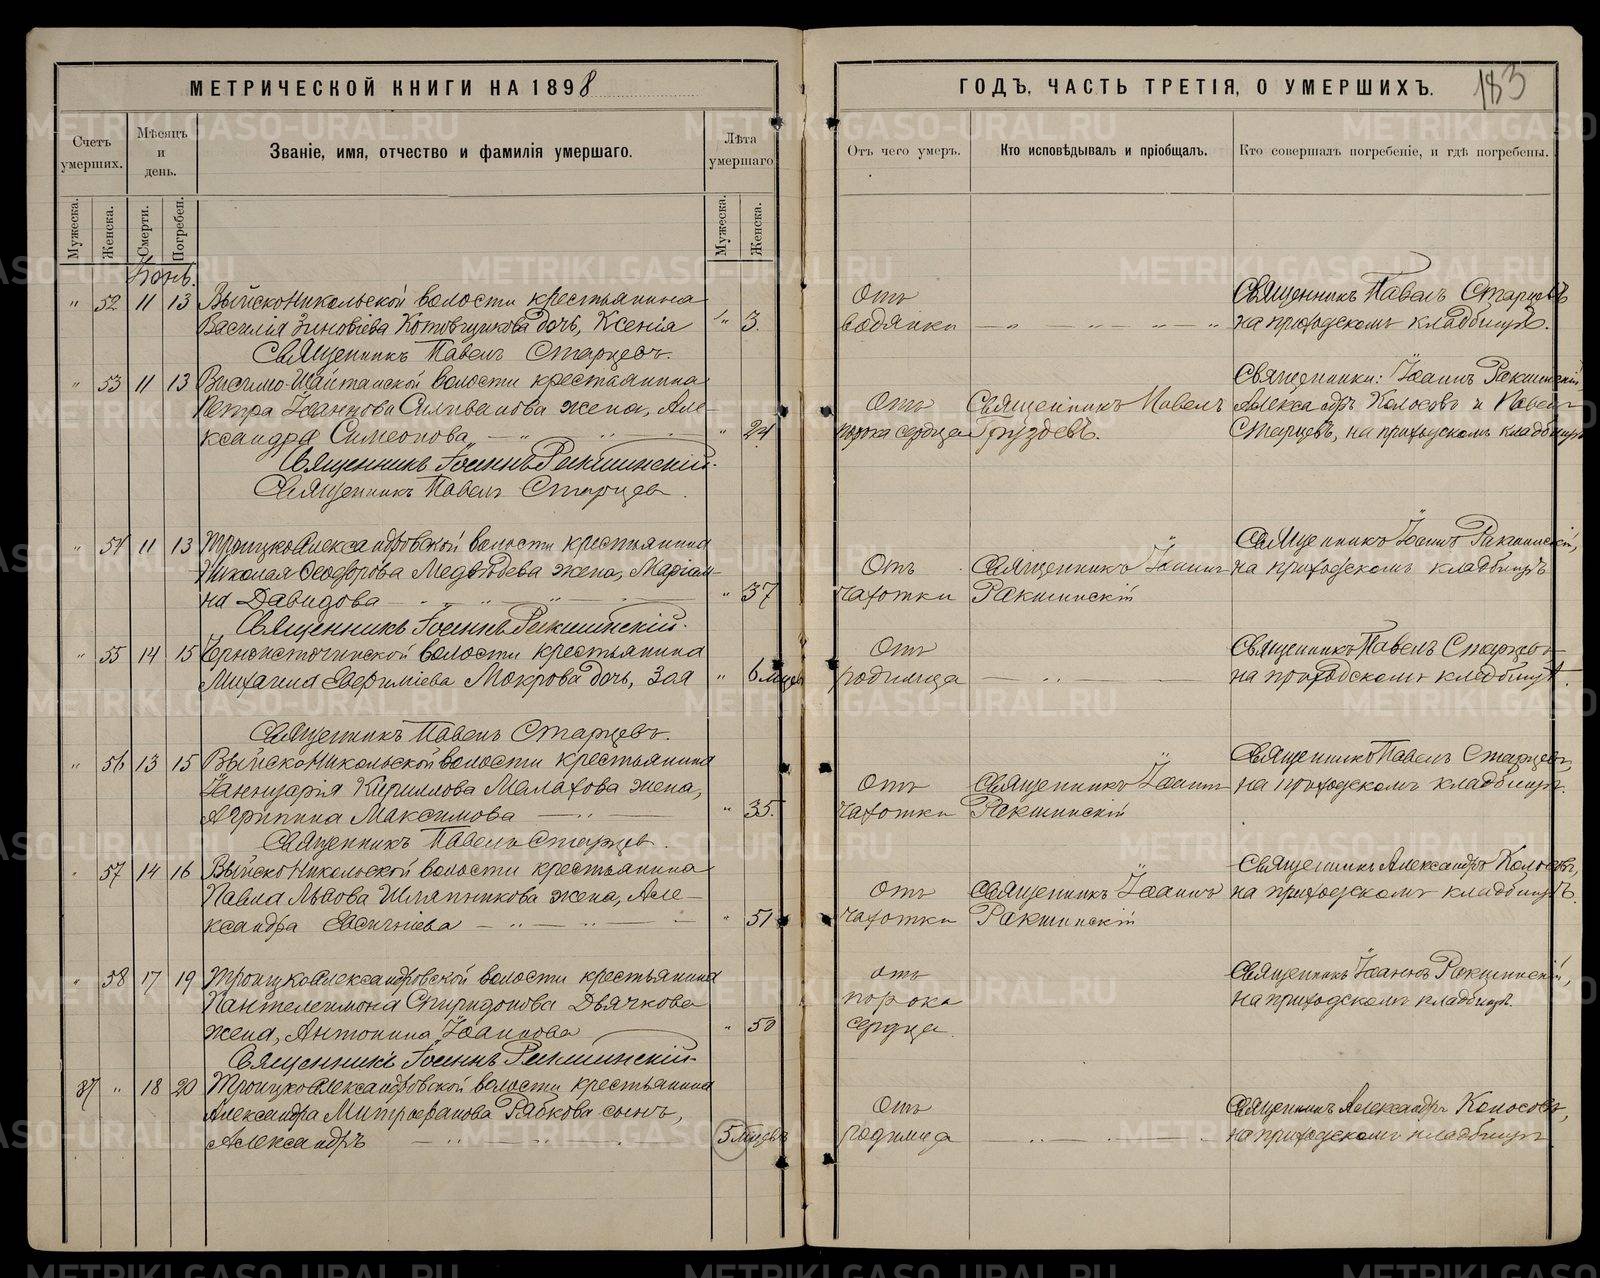 МЕТРИЧЕСКОЙ КНИГИ НА 1898
ГОДЪ, ЧАСТЬ ТРЕТІЯ, О УМЕРШИХЪ.
183
Счетъ умершихъ.
Мѣсяцъ и день.
Званіе, имя, отчество и фамилія умершаго.
Лѣта умершаго
Отъ чего умеръ.
Кто исповѣдывалъ и пріобщалъ.
Кто совершалъ погребеніе, и гдѣ погребены.
Мужеска.
Женска.
Смерти.
Погребен.
Мужеска.
Женска.
" 52 11 13 Выйско Никольской волости крестьянина
Василія Зиновіева Котовщикова дочь, Ксенія " 3.
Отъ
водянки
Священникъ Павелъ Старцевъ
на приходскомъ кладбищѣ.
Священникъ Павелъ Старцевъ.
" 53 11 13 Висимо-Шайтанской волости крестьянина
Петра Іоаннова Силиванова жена, Але-
ксандра Симеонова " 24
Отъ
порока сердца
Священникъ Павелъ
Груздевъ.
Священники: Іоаннъ Ракшинскій
Александръ Колосовъ и Павелъ
Старцевъ, на приходскомъ кладбищѣ
Священникъ Іоаннъ Ракшинскій.
Священникъ Павелъ Старцевъ.
" 54 11 13 Троицко Александровской волости крестьянина
Николая Ѳеодорова Медвѣдева жена, Маріам-
на Давидова " 37
Отъ
чахотки
Священникъ Іоаннъ
Ракшинскій
Священникъ Іоаннъ Ракшинскій,
на приходскомъ кладбищѣ
Священникъ Іоаннъ Ракшинскій.
" 55 14 15 Черноисточинской волости крестьянина
Михаила Евѳиміева Мокрова дочь, Зоя " 6 мцевъ
Отъ
родимца
Священникъ Павелъ Старцевъ
на приходскомъ кладбищѣ.
Священникъ Павелъ Старцевъ.
" 56 13 15 Выйско Никольской волости крестьянина
Іаннуарія Кириллова Малахова жена,
Агрипина Максимова " 35.
Отъ
чахотки
Священникъ Іоаннъ
Ракшинскій
Священникъ Павелъ Старцевъ,
на приходскомъ кладбищѣ.
Священникъ Павелъ Старцев.
" 57 14 16 Выйско Никольской волости крестьянина
Павла Львова Шляпникова жена, Але-
ксандра " 51
Отъ
чахотки
Священникъ Іоаннъ
Ракшинскій
Священникъ Александръ Колосовъ,
на приходскомъ кладбищѣ.
" 58 17 19 Троицко Александровской волости крестьянина
Пантелеимона Спиридонова Дьячкова
жена, Антонина Іоаннова " 50
отъ
порока
сердца.
Священникъ Іоаннъ Ракшинскій,
на приходскомъ кладбищѣ
Священникъ Іоаннъ Ракшинскій
37 " 18 20 Троицко Александровской волости крестьянина
Александра Митрофанова Рябкова сынъ,
Александръ 5 мцевъ
Отъ
родимца
Священникъ Александръ Колосовъ,
на приходскомъ кладбищѣ
METRIKI.GASO-URAL.RU